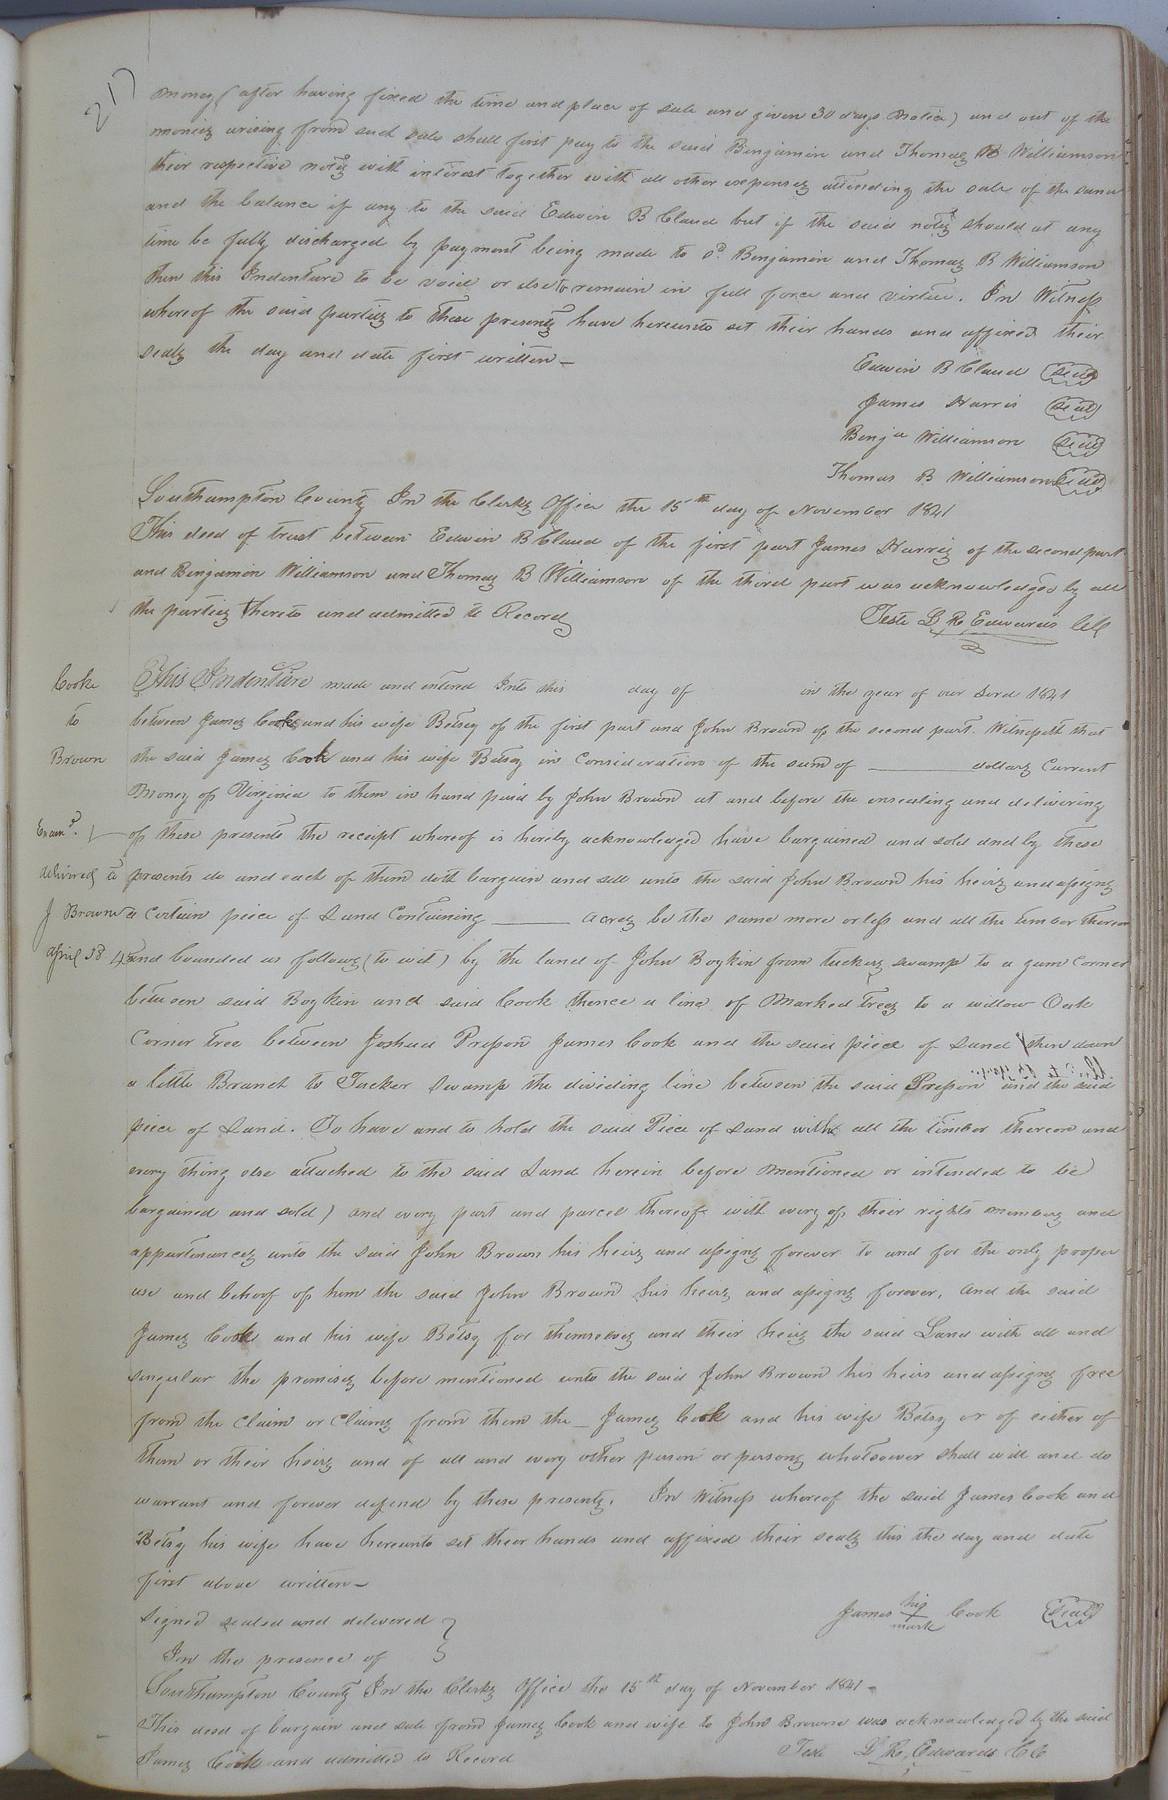 217
money (after having fixed the time and place of sale and given 30 days notice) and out of the
moneis arising from such sale shall first pay to the said Benjamin and Thomas B Williamson
their respective notes with interest together with all other expenses attending the sale of the same
and the balance if any to the said Edwin B Claud but if the said notes should at any
time be fully discharged by payment being made to sd. Benjamin and Thomas B Williamson
then this Indenture to be void or else to remain in full force and virtue. In Witness
whereof the said parties to these presents have hereunto set their hands and affixed their
seals the day and date first written –
Edwin B Claud (seal)
James Harris (seal)
Benja Williamson (seal)
Thomas B Williamson (seal)
Southampton County In the Clerks Office the 15th day of November 1841
This deed of trust between Edwin B Claud of the first part James Harris of the second part
and Benjamin Williamson and Thomas B Williamson of the third part was acknowledged by all
the parties thereto and admitted to Record
Teste L R, Edwards ClC
Cooke
to
Brown
Examd.
delivered to
J Browne
april 38 45
This Indenture made and entered Into this day of in the year of our Lord 1841
between James Cook and his wife Betsey of the first part and John Brown of the second part. Witnesseth that
the said James Cook and his wife Betsy in Consideration of the sum of ______ dollars Current
Money of Virginia to them in hand paid by John Brown at and before the ensealing and delivering
of these presents the receipt whereof is hereby acknowledged have bargained and sold and by these
presents do and each of them doth bargain and sell unto the said John Brown his heirs and assigns
a certain piece of Land Containing ______ acres be the same more or less and all the timber thereon
and bounded as follows (to wit) by the land of John Boykin from tuckers swamp to a gum corner
between said Boykin and said Cook thence a line of Marked trees to a willow Oak
Corner tree between Joshua Presson James Cook and the said piece of Land then down
a little Branch to Tucker swamp the dividing line between the said Presson and the said
piece of Land. To have and to hold the said Piece of Land with all the timber thereon and
every thing else attached to the said Land herein before mentioned or intended to be
bargained and sold) and every part and parcel thereof with every of their rights members and
appurtenances unto the said John Brown his heirs and assigns forever to and for the only pooper
use and behoof of him the said John Brown his heirs and assigns forever, And the said
James Cook and his wife Betsy for themselves and their heirs the said Land with all and
singular the premises before mentioned unto the said John Brown his heirs and assigns free
from the Claim or Claims from them the – James Cook and his wife Betsy or of either of
them or their heirs and of all and every other person or persons whatsoever shall will and do
warrant and forever defend by these presents. In Witness whereof the said James Cook and
Betsy his wife have hereunto set their hands and affixed their seals this the day and date
first above written –
Signed sealed and delivered
In the presence of
James his mark Cook (Seal)
Southampton County In the Clerks Office the 15th day of November 1841 –
This deed of bargain and sale from James Cook and wife to John Browne was acknowledged by the said
James Cook and admitted to Record
Teste L R, Edwards CC